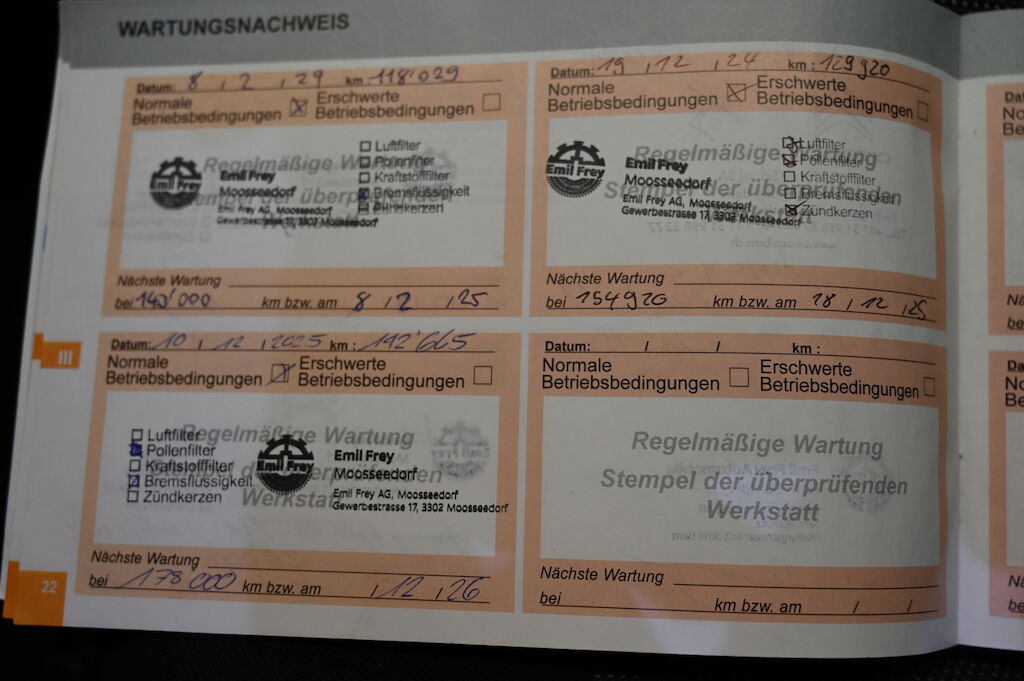 WARTUNGSNACHWEIS
Datum: 8 / 2 / 24 km: 118'029
Normale Betriebsbedingungen ☒ Erschwerte Betriebsbedingungen ☐
Regelmäßige Wartung
Stempel der überprüfenden
Emil Frey
Emil Frey
Moosseedorf
Emil Frey AG, Moosseedorf
Gewerbestrasse 17, 3302 Moosseedorf
☐ Luftfilter
☐ Pollenfilter
☐ Kraftstofffilter
☒ Bremsflüssigkeit
☐ Zündkerzen
Nächste Wartung
bei 143'000 km bzw. am 8 / 2 / 25
Datum: 19 / 12 / 24 km: 129920
Normale Betriebsbedingungen ☒ Erschwerte Betriebsbedingungen ☐
Regelmäßige Wartung
Stempel der überprüfenden
Werkstatt
Emil Frey
Emil Frey
Moosseedorf
Emil Frey AG, Moosseedorf
Gewerbestrasse 17, 3302 Moosseedorf
☒ Luftfilter
☒ Pollenfilter
☐ Kraftstofffilter
☐ Bremsflüssigkeit
☒ Zündkerzen
Nächste Wartung
bei 154920 km bzw. am 18 / 12 / 25
III
Datum: 10 / 12 / 2025 km: 142'665
Normale Betriebsbedingungen ☒ Erschwerte Betriebsbedingungen ☐
Regelmäßige Wartung
Stempel der überprüfenden
Werkstatt
☐ Luftfilter
☒ Pollenfilter
☐ Kraftstofffilter
☒ Bremsflüssigkeit
☐ Zündkerzen
Emil Frey
Emil Frey
Moosseedorf
Emil Frey AG, Moosseedorf
Gewerbestrasse 17, 3302 Moosseedorf
Nächste Wartung
bei 178000 km bzw. am / 12 / 26
Datum: / / km:
Normale Betriebsbedingungen ☐ Erschwerte Betriebsbedingungen ☐
Regelmäßige Wartung
Stempel der überprüfenden
Werkstatt
Nächste Wartung
bei km bzw. am / /
22